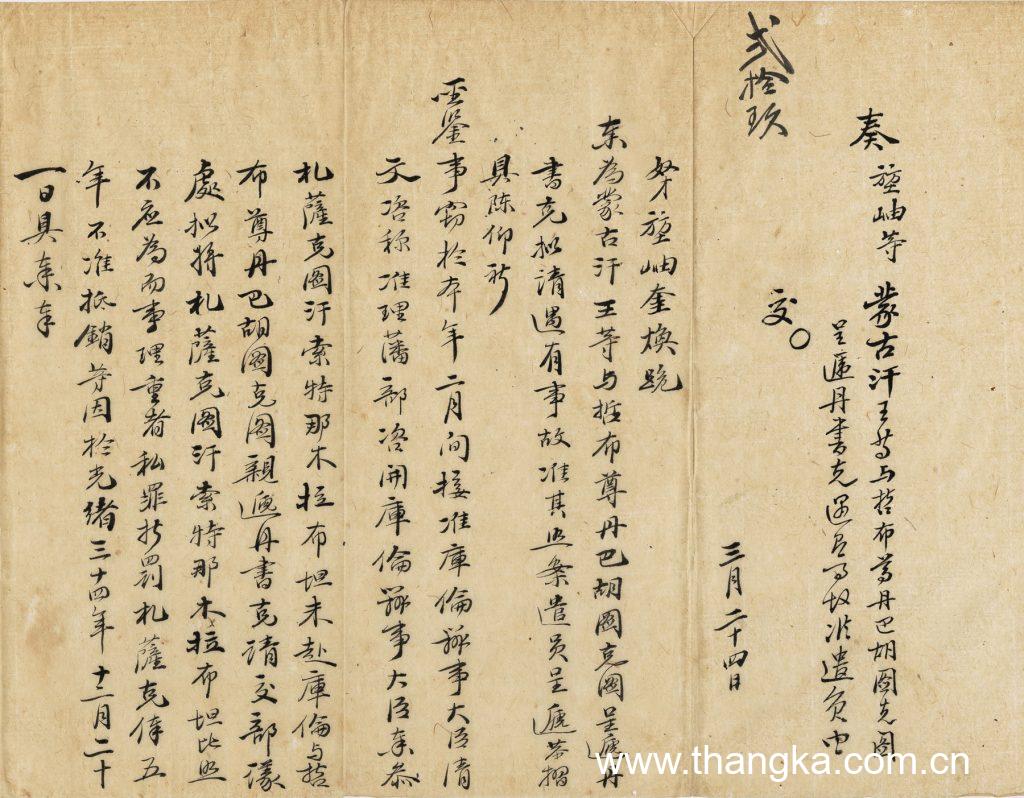 奏 堃岫等 蒙古汗王等与哲布尊丹巴胡图克图
呈递丹书克遇有事故准遣员由
交〇
三月二十四日
弍拾玖
奴才堃岫奎焕跪
奏为蒙古汗王等与哲布尊丹巴胡圖克圖呈遞丹
书克拟请遇有事故准其照案遣员呈遞恭摺
具陈仰祈
圣鉴事窃於本年二月间接准庫倫辦事大臣清
文咨称准理藩部咨开庫倫辦事大臣奏参
札薩克圖汗索特那木拉布坦未赴庫倫与哲
布尊丹巴胡圖克圖親遞丹書克請交部議
處拟将札薩克圖汗索特那木拉布坦比照
不应為而事理重者私罪折罰札薩克俸五
年不准抵銷等因於光緒三十四年十二月二十
一日具奏奉
www.thangka.com.cn